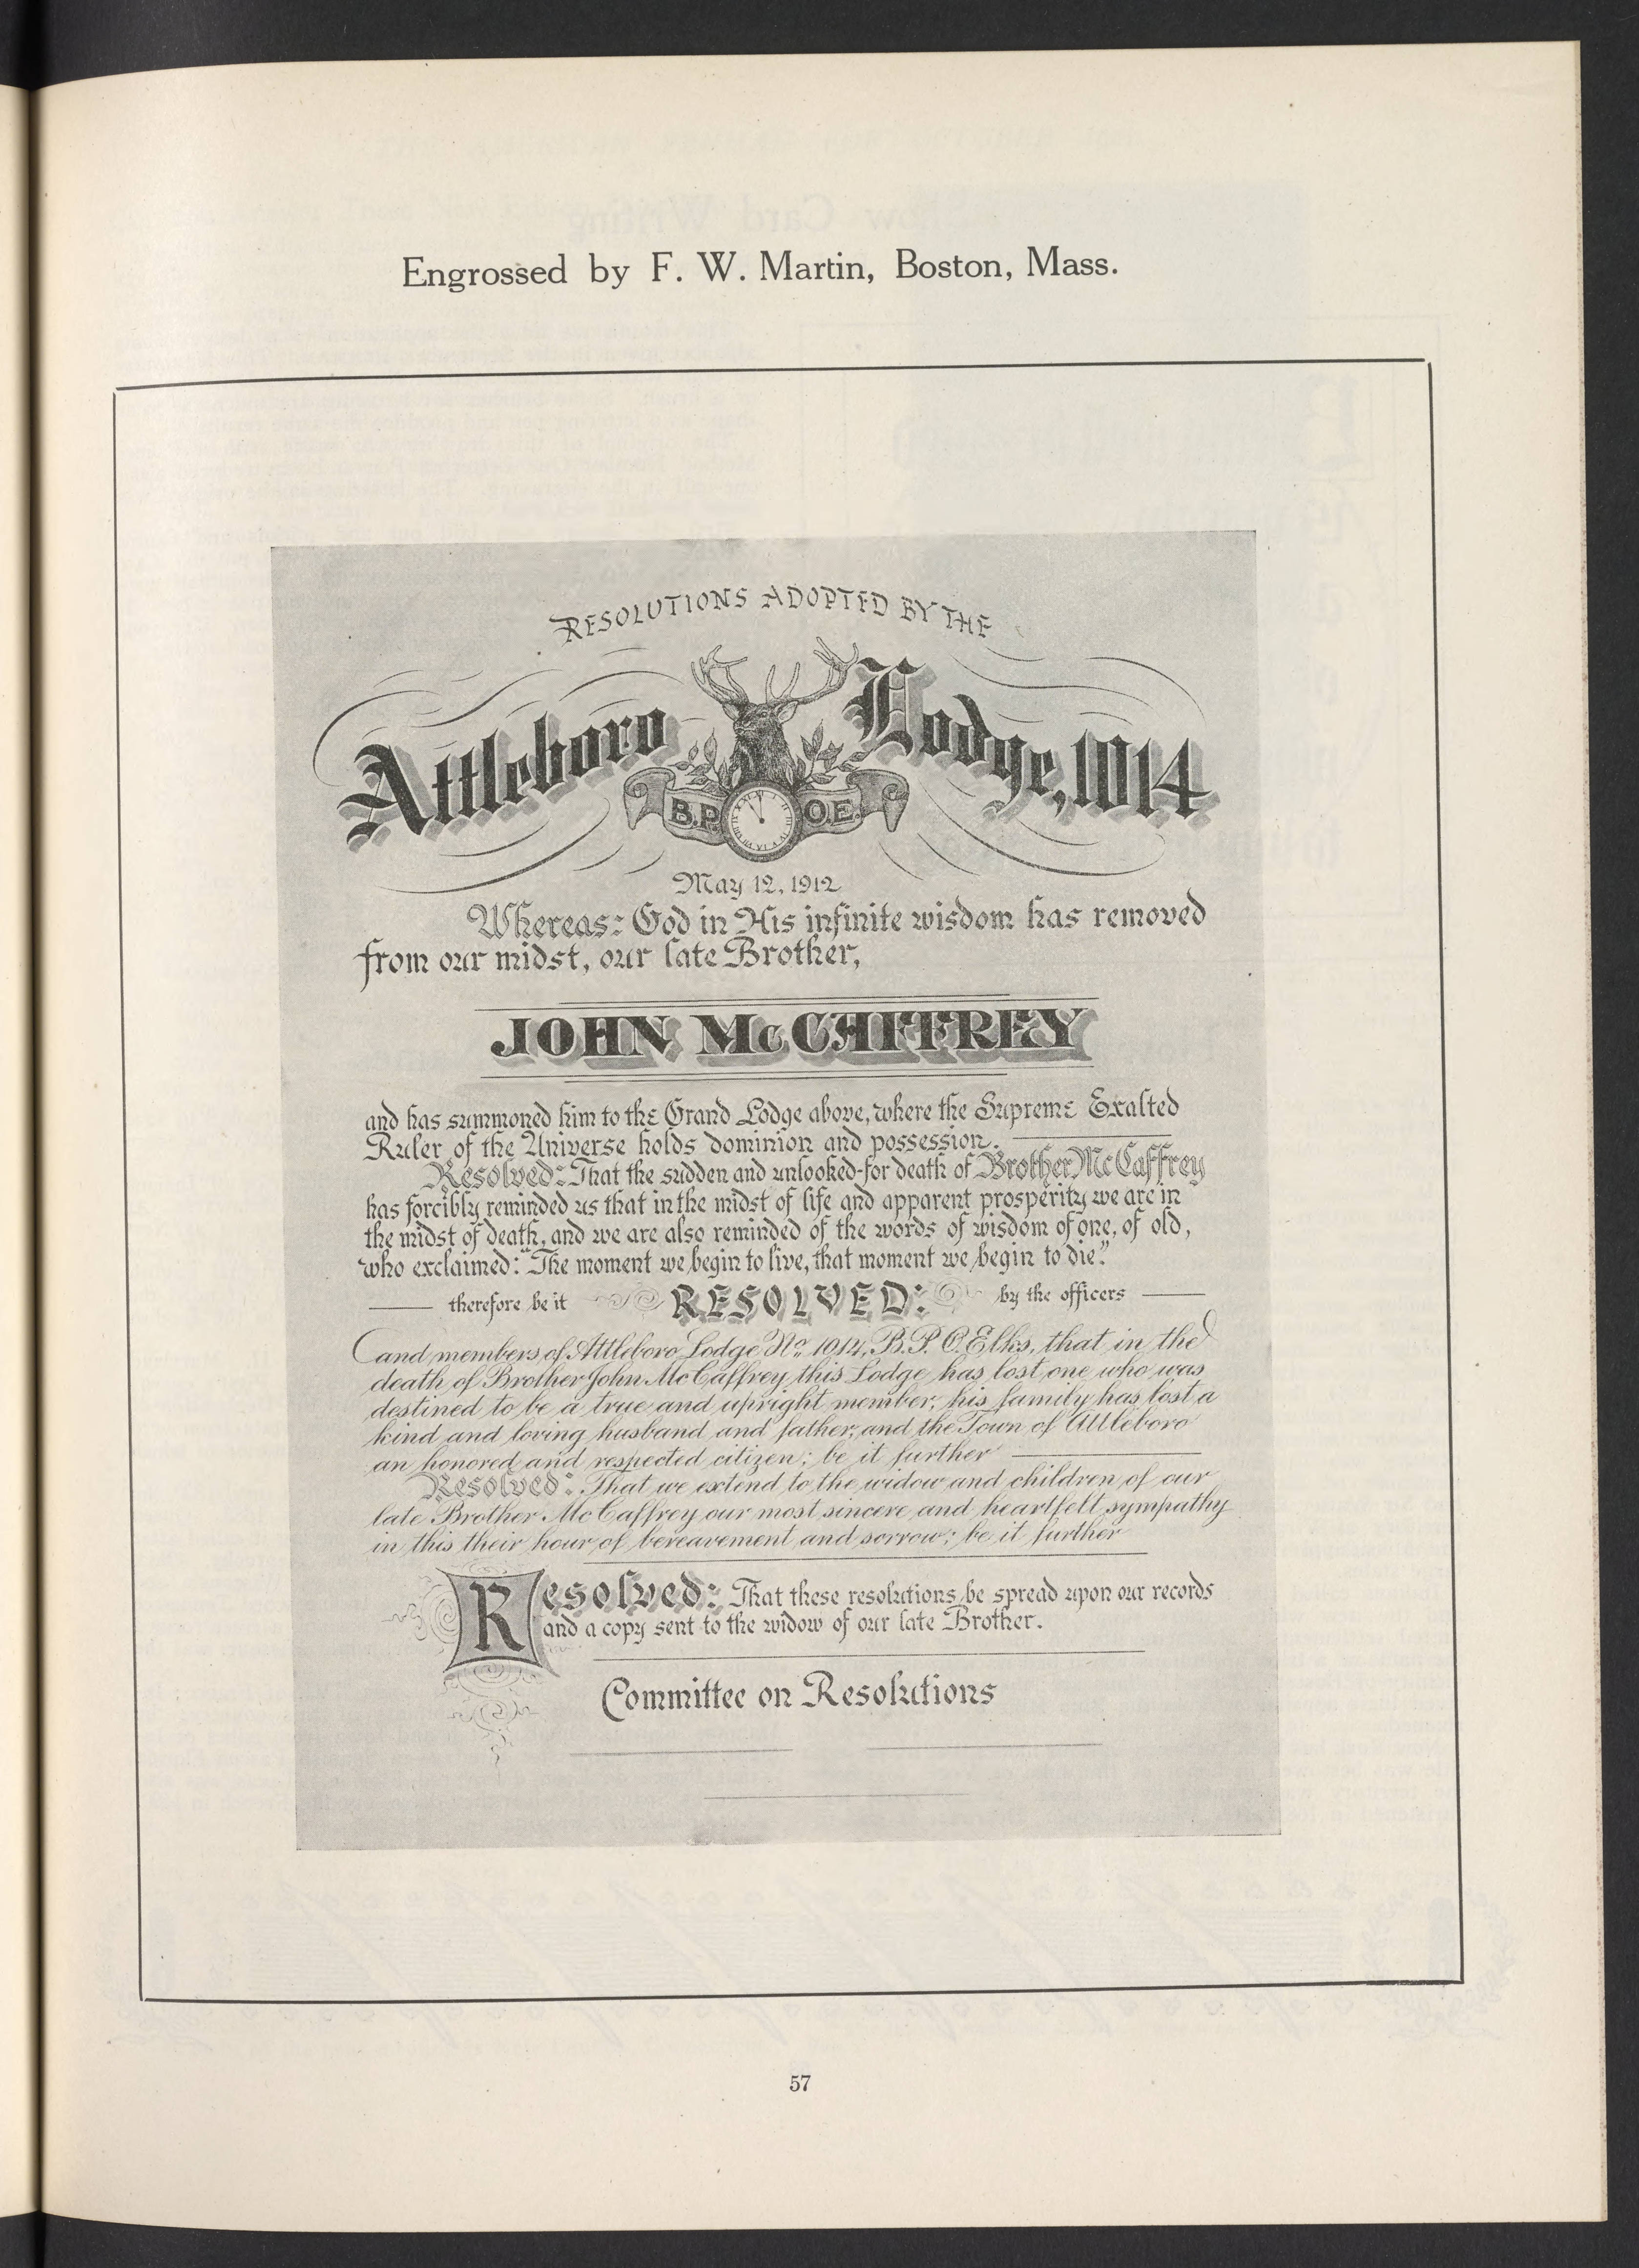 Engrossed by F. W. Martin, Boston, Mass.
RESOLUTIONS ADOPTED BY THE
Attleboro Lodge, 1014
B.P. O.E.
May 12, 1912
Whereas: God in His infinite wisdom has removed
from our midst, our late Brother,
JOHN McCAFFREY
and has summoned him to the Grand Lodge above, where the Supreme Exalted
Ruler of the Universe holds dominion and possession.
Resolved: That the sudden and unlooked-for death of Brother McCaffrey
has forcibly reminded us that in the midst of life and apparent prosperity we are in
the midst of death, and we are also reminded of the words of wisdom of one, of old,
who exclaimed: "The moment we begin to live, that moment we begin to die."
therefore be it RESOLVED: by the officers
and members of Attleboro Lodge No. 1014, B.P.O. Elks, that in the
death of Brother John McCaffrey this Lodge has lost one who was
destined to be a true and upright member; his family has lost a
kind and loving husband and father; and the Town of Attleboro
an honored and respected citizen; be it further
Resolved: That we extend to the widow and children of our
late Brother McCaffrey our most sincere and heartfelt sympathy
in this their hour of bereavement and sorrow; be it further
Resolved: That these resolutions be spread upon our records
and a copy sent to the widow of our late Brother.
Committee on Resolutions
57